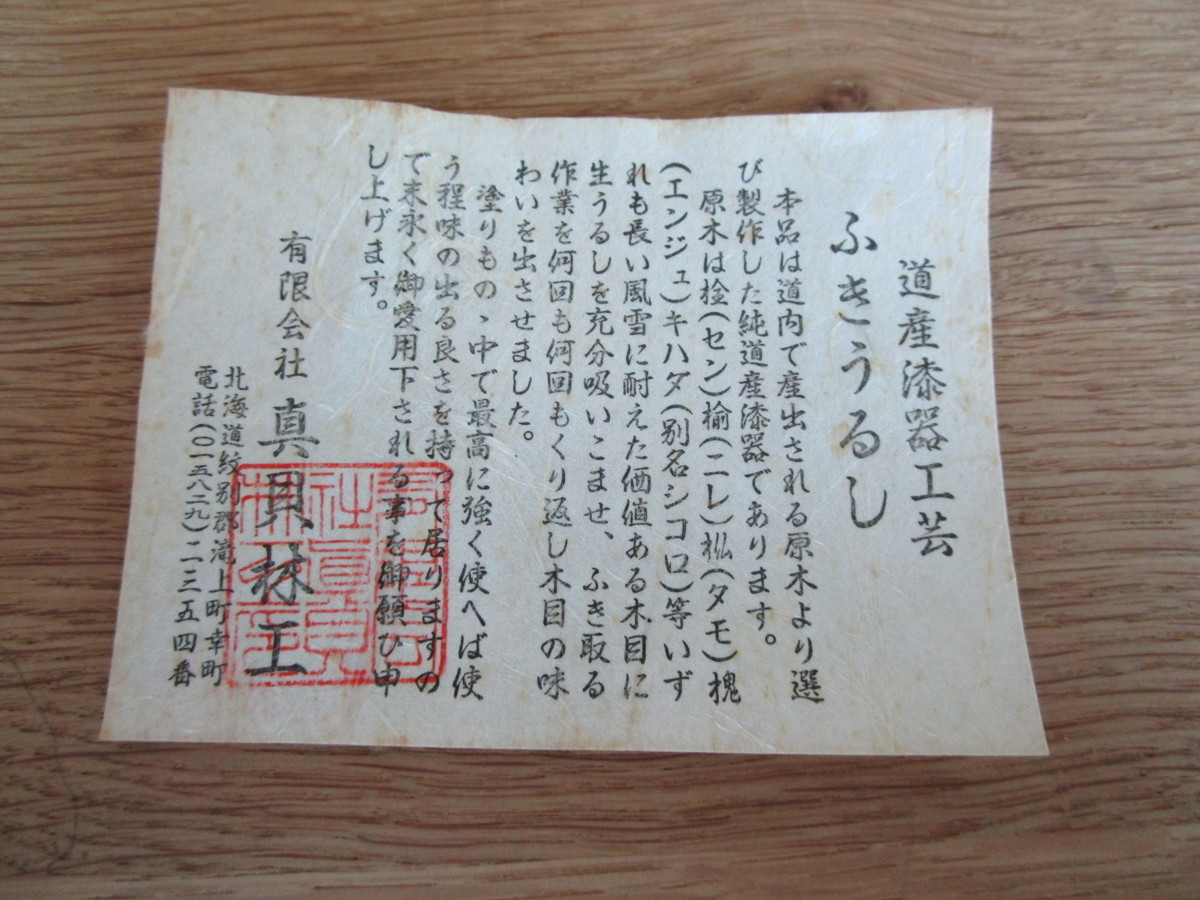 道産漆器工芸
ふきうるし
本品は道内で産出される原木より選
び製作した純道産漆器であります。
原木は栓(セン)楡(ニレ)梻(タモ)槐
(エンジュ)キハダ(別名シコロ)等いず
れも長い風雪に耐えた価値ある木目に
生うるしを充分吸いこませ、ふき取る
作業を何回も何回もくり返し木目の味
わいを出させました。
塗りものゝ中で最高に強く使へば使
う程味の出る良さを持って居りますの
で末永く御愛用下される事を御願ひ申
し上げます。
有限会社 真貝林工
北海道紋別郡滝上町幸町
電話(〇一五八二九)二―三五四番